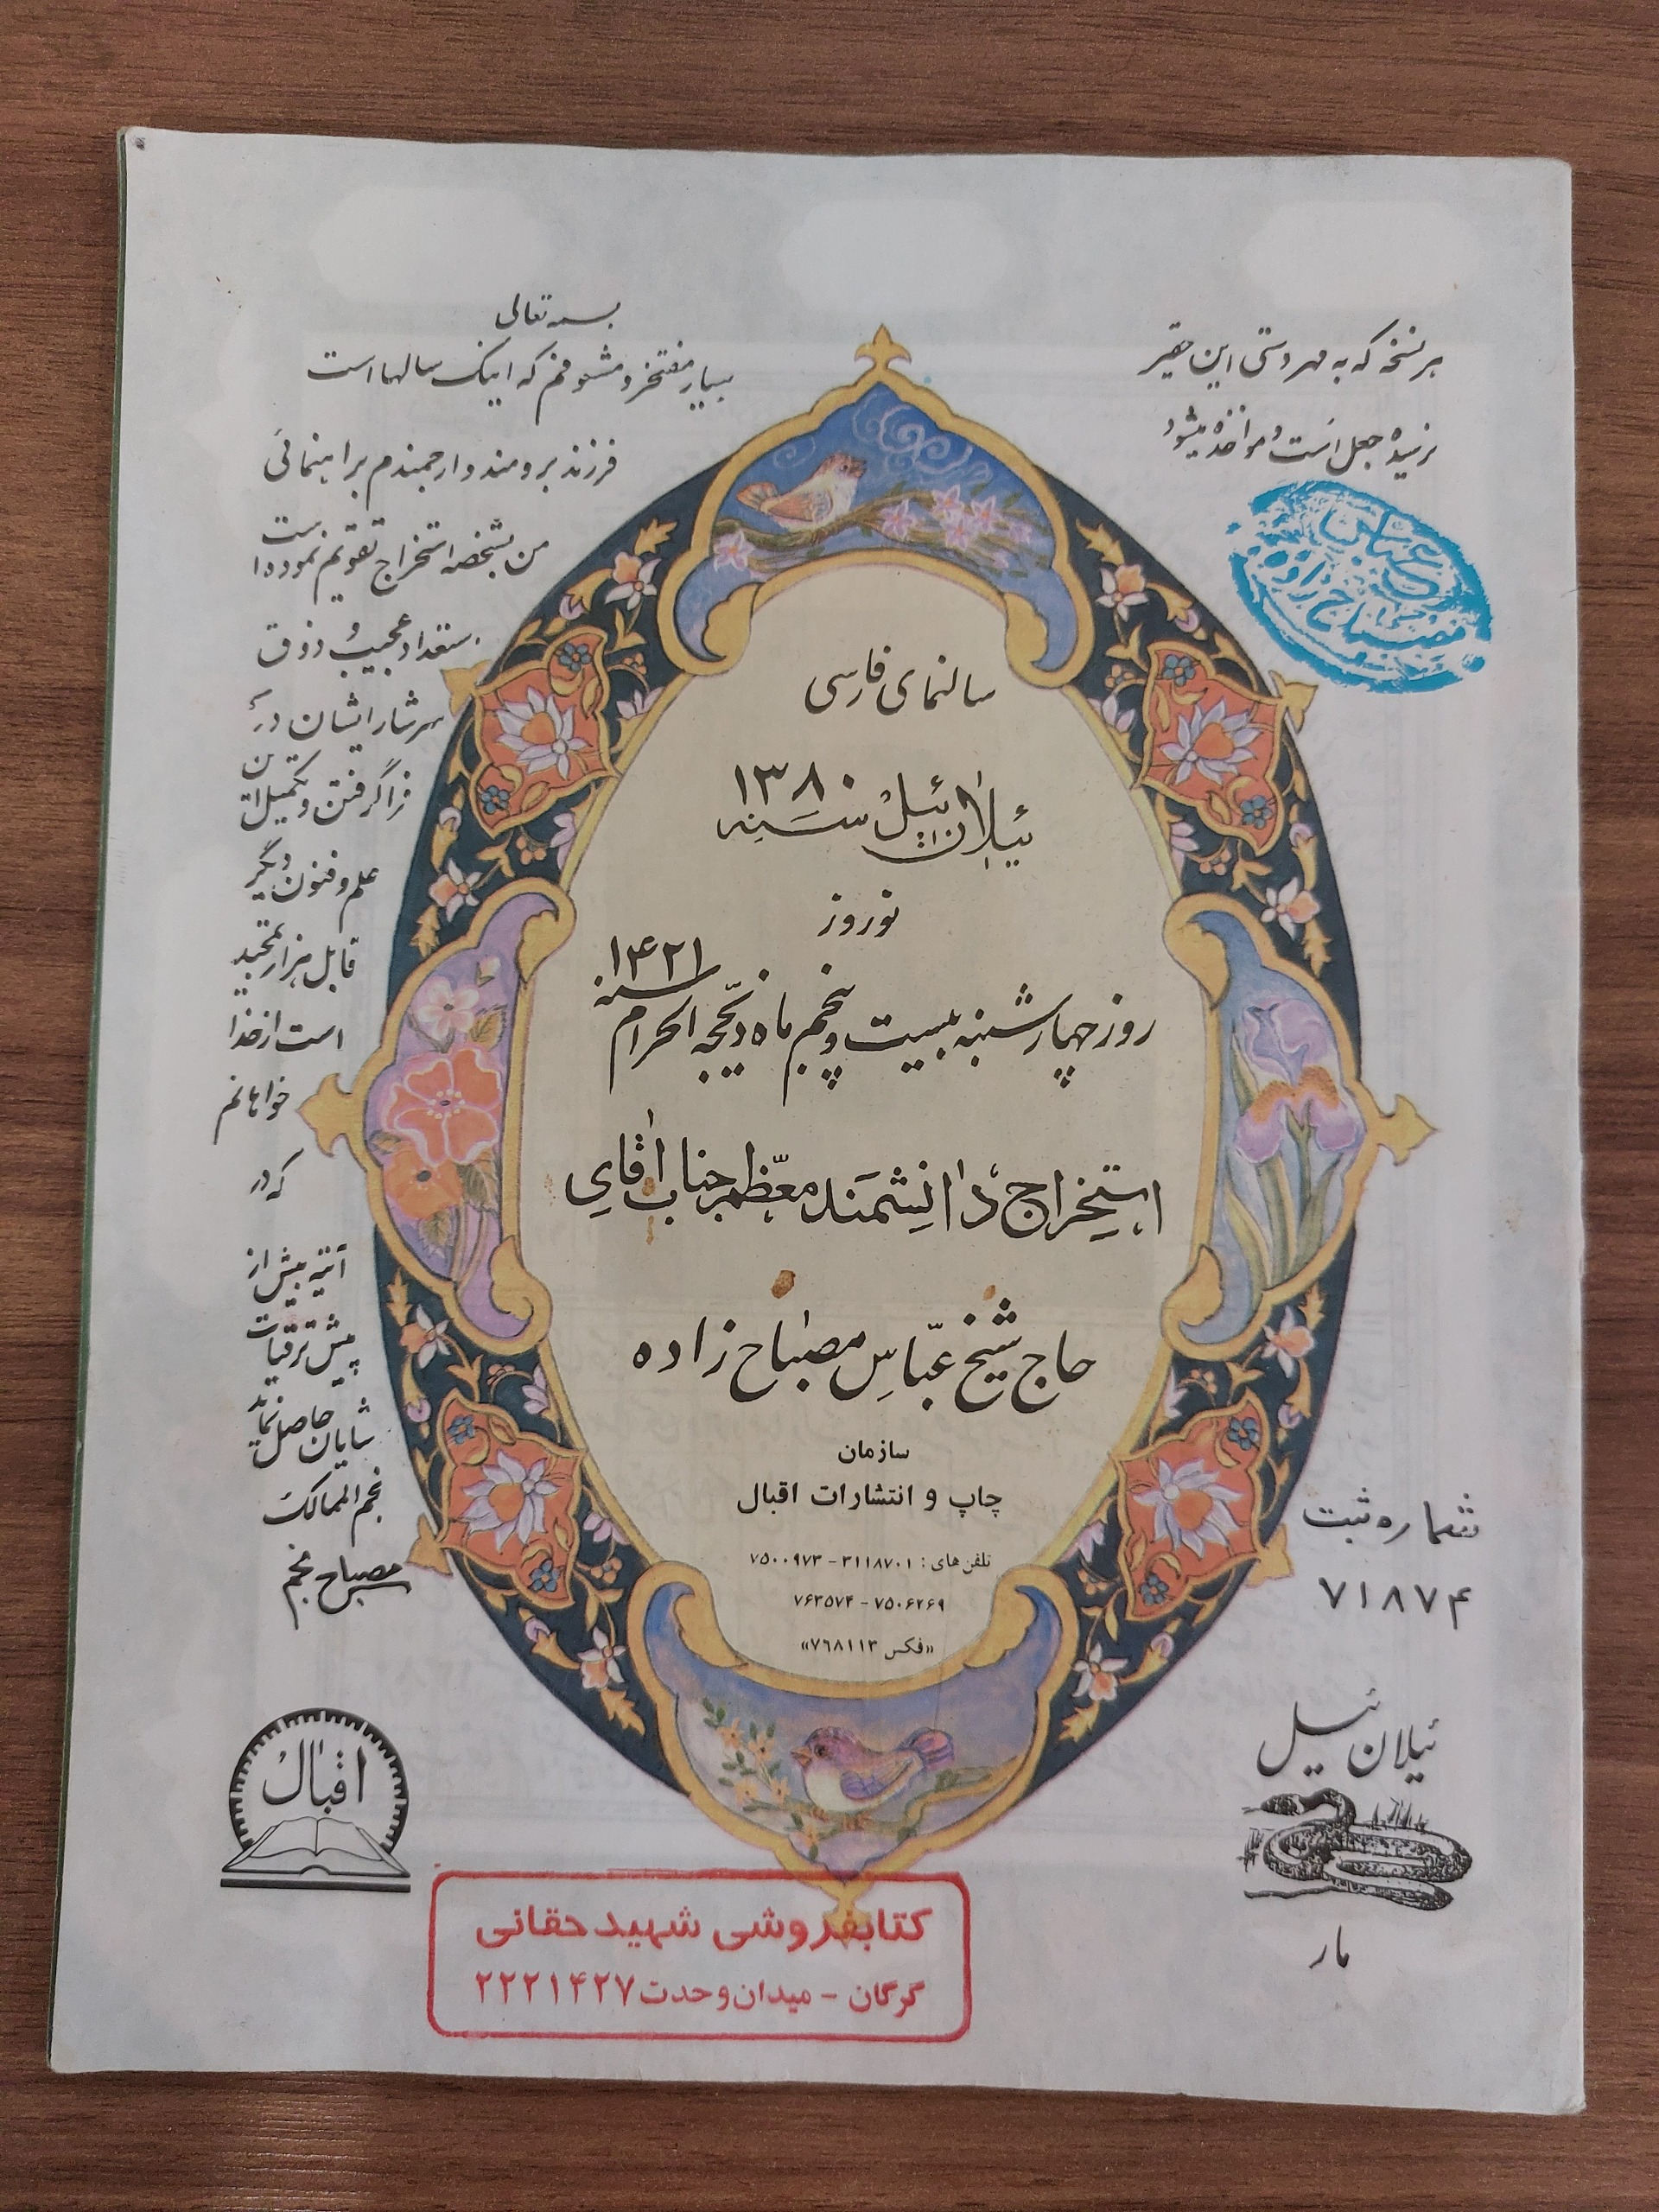 بسمه تعالی
بسیار مفتخر و مشعوفم که اینک سالها است
فرزند برومند و ارجمندم براهنمائی
من بشخصه استخراج تقویم نموده است
استعداد عجیب و ذوق
سرشار ایشان در
فراگرفتن و تکمیل این
علم و فنون دیگر
قابل هزار تمجید
است از خدا
خواهانم
که در
آتیه بیش از
پیش ترقیات
شایان حاصل نماید
نجم الممالک
مصباح منجم
هر نسخه که به مهر دستی این حقیر
نرسیده جعل است و مواخذه میشود
عباس
مصباح زاده
سالنمای فارسی
ئیلان ئیل سنه ۱۳۸۰
نوروز
روز چهارشنبه بیست و پنجم ماه ذیحجه الحرام سنه ۱۴۲۱
استخراج دانشمند معظم جناب آقای
حاج شیخ عباس مصباح زاده
سازمان
چاپ و انتشارات اقبال
تلفن های : ۳۱۱۸۷۰۱ - ۷۵۰۰۹۷۳
۷۵۰۶۲۶۹ - ۷۶۳۵۷۴
«فکس ۷۶۸۱۱۳»
شماره ثبت
۷۱۸۷۴
ئیلان ئیل
مار
اقبال
کتابفروشی شهید حقانی
گرگان - میدان وحدت ۲۲۲۱۴۲۷